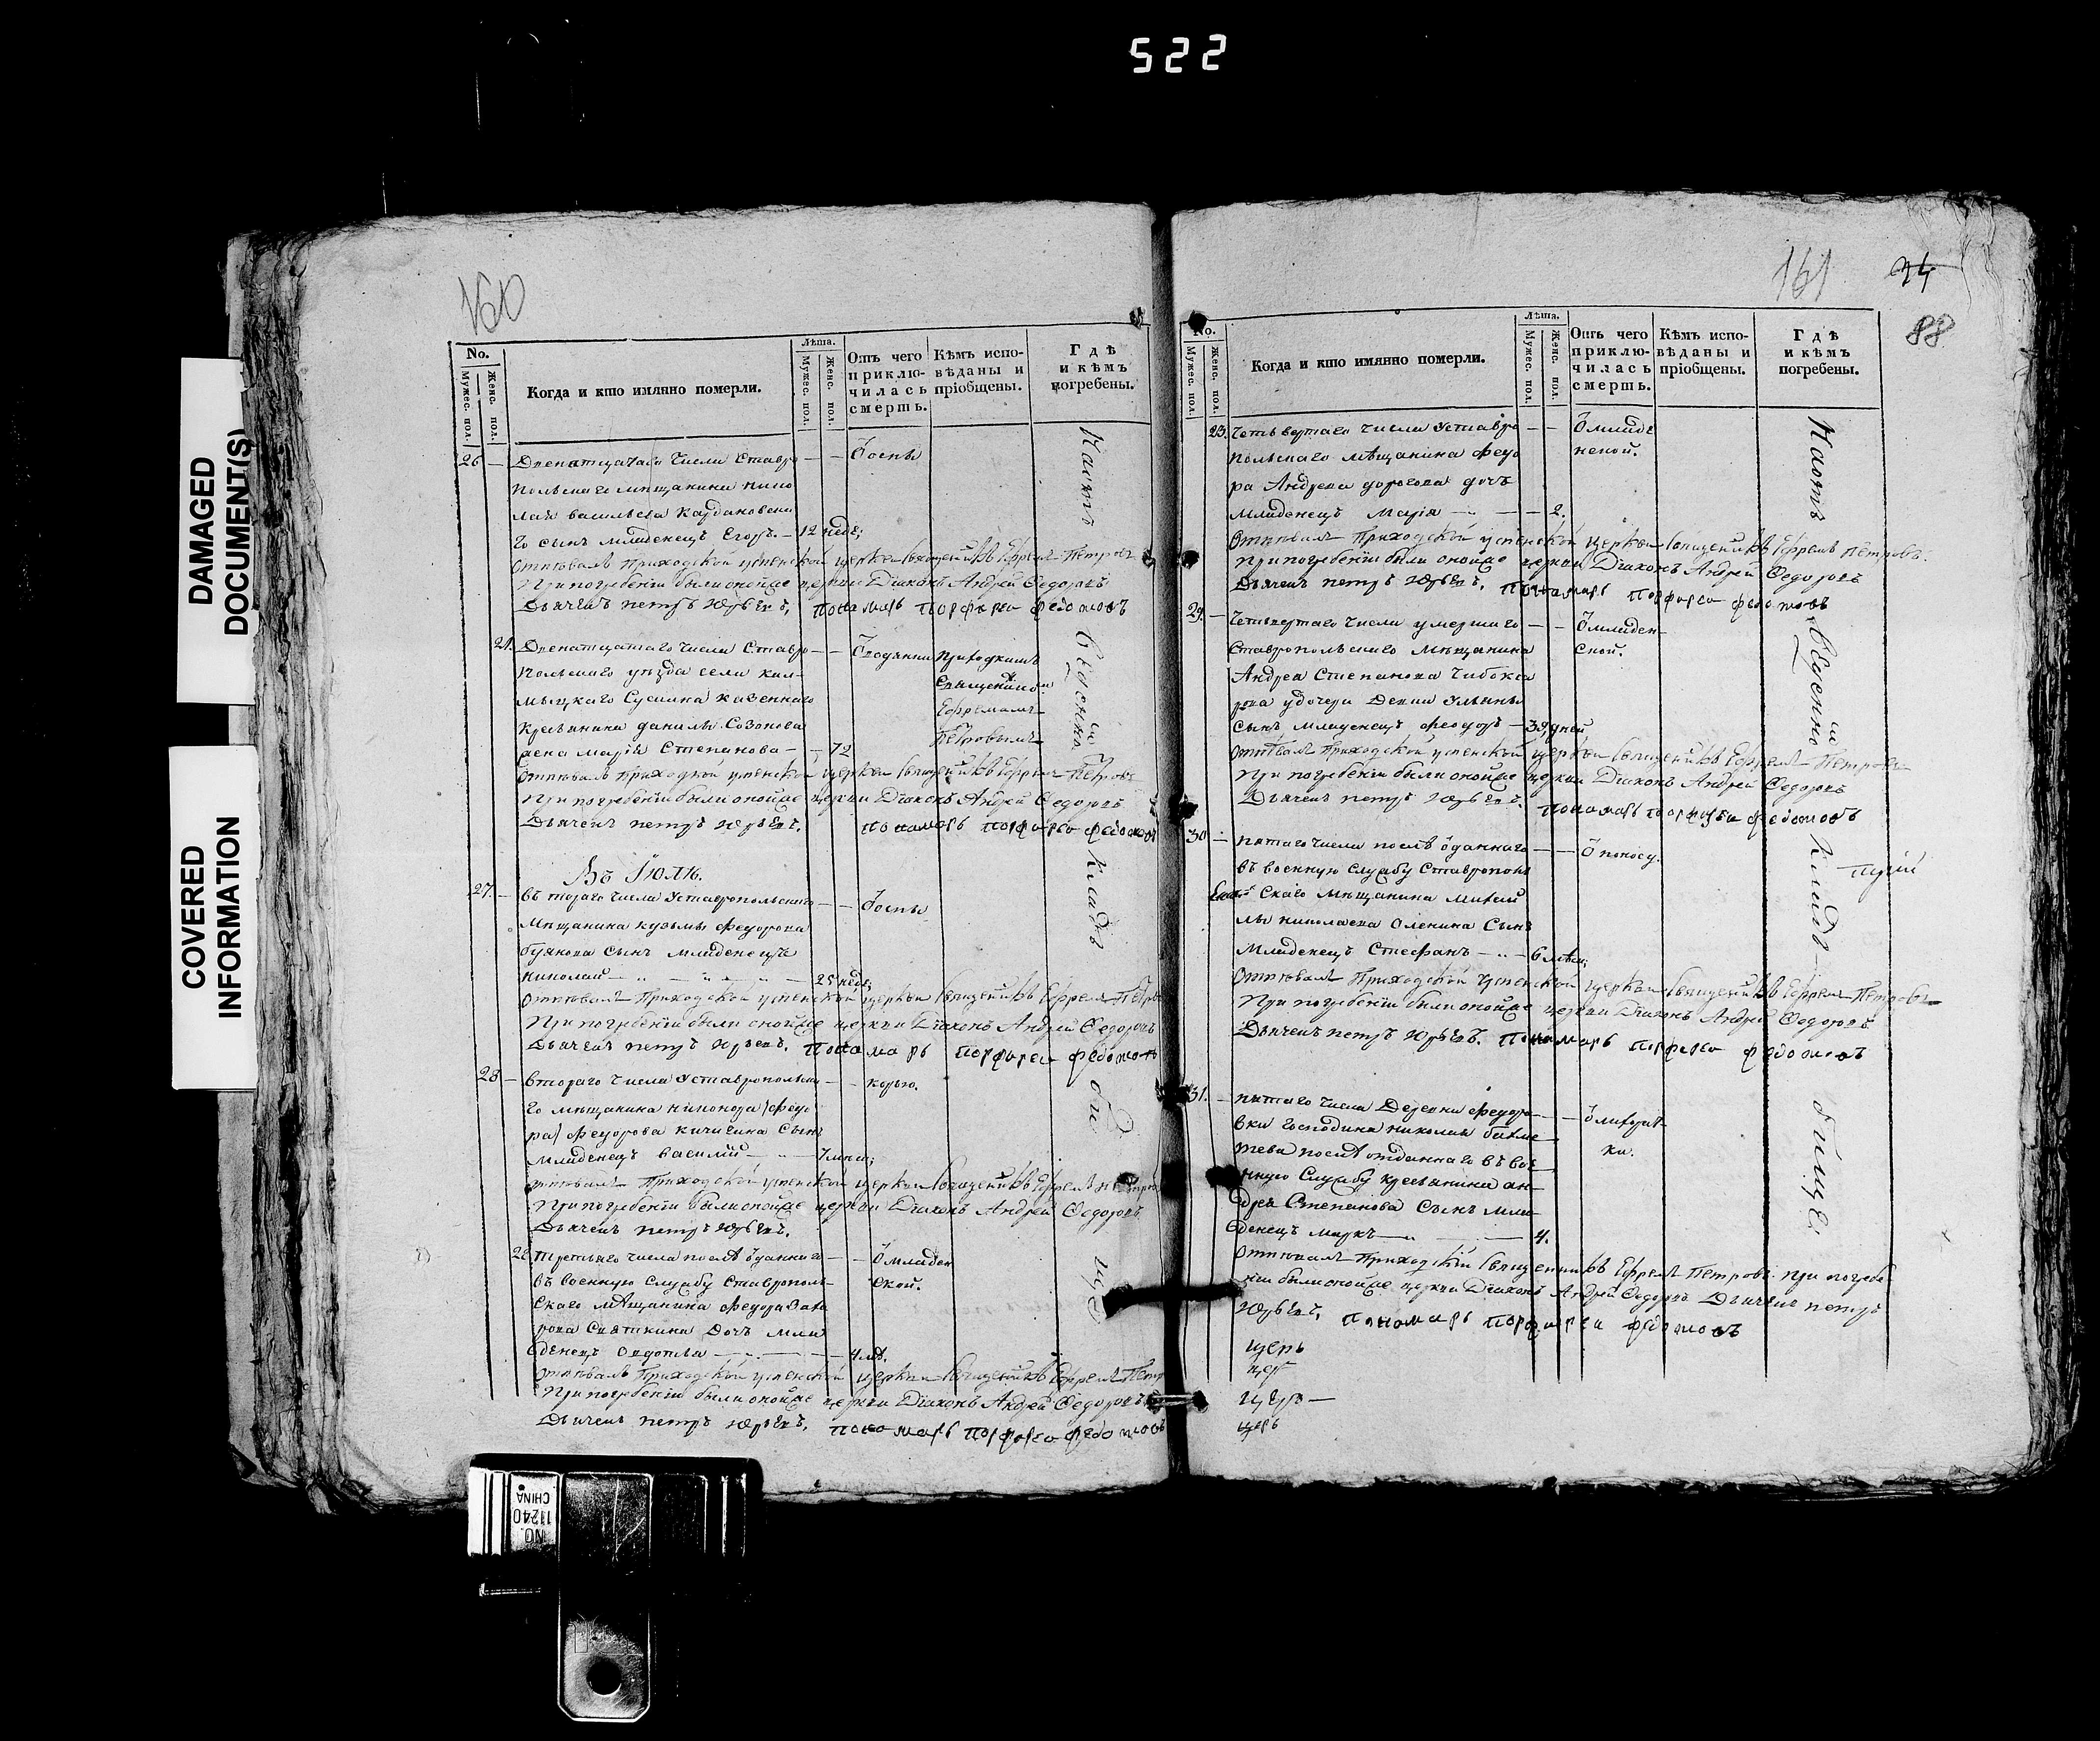 522
DAMAGED
DOCUMENT(S)
COVERED
INFORMATION
160
No.
Мужес. пол.
Женс. пол.
Когда и кто имянно померли.
Лѣта.
Мужес. пол.
Женс. пол.
Отъ чего
приклю-
чилась
смерть.
Кѣмъ испо-
вѣданы и
пріобщены.
Гдѣ
и кѣмъ
погребены.
26 — числа Ставро — — оспы
польскаго мѣщанина нико
лая васильева Кардановска
го сынъ младенецъ Егоръ. — 12 недѣ;
отпѣвалъ Приходской успенской церкви священникъ Ефремъ Петровъ
При погребеніи были оной же церкви Діаконъ Андрей Федоровъ
Дьячекъ петръ Юрьевъ, пономарь порфирей федотовъ
21. числа Ставро — —
польскаго уѣзда села кал-
мыцкаго казеннаго
Крестьянина данилы Созонова
жена марія Степанова — — 72
Приходскимъ
Священником
Ефремомъ
Петровымъ
отпѣвалъ приходской успенской церкви священникъ Ефремъ Петровъ
При погребеніи были оной же церкви Діаконъ Андрей Федоровъ
Дьячекъ петръ Юрьевъ. пономарь порфирей федотовъ
Въ Іюлѣ.
27. — второго числа Уставропольскаго — — оспы
мѣщанина кузьмы федорова
буянова сынъ младенецъ
николай — 25 недѣ;
отпѣвалъ Приходской успенской церкви священникъ Ефремъ Петров
При погребеніи были оной же церкви Діаконъ Андрей Федоровъ
Дьячекъ петръ Юрьевъ. пономарь порфирей федотовъ
28 — второго числа Уставропольска — — корью.
го мѣщанина никонора /федо
ра/ федорова кичигина Сынъ
младенецъ василій — 7 мѣся;
отпѣвалъ Приходской успенской церкви священникъ Ефремъ Петров
При погребеніи были оной же церкви Діаконъ Андрей Федоровъ
Дьячекъ петръ Юрьевъ.
22. третьяго числа послѣ отданнаго — — младен
въ военную Службу Ставрополь- ской.
скаго мѣщанина федора Заха
рова Дочь мла
денецъ Авдотья — 4 лѣ.
отпѣвалъ Приходской успенской церкви священникъ Ефремъ Петр
При погребеніи были оной же церкви Діаконъ Андрей Федоровъ
Дьячекъ петръ Юрьевъ, пономарь порфирей федотовъ
На отъ
веденномъ
кладъ
би
щѣ
161
34
88
No.
Мужес. пол.
Женс. пол.
Когда и кто имянно померли.
Лѣта.
Мужес. пол.
Женс. пол.
Отъ чего
приклю-
чилась
смерть.
Кѣмъ испо-
вѣданы и
пріобщены.
Гдѣ
и кѣмъ
погребены.
23. Четвертаго числа Уставро — — младе
польскаго мѣщанина федо нской.
ра Андреева дорогова дочь
младенецъ Марія — — 2.
отпѣвалъ Приходской успенской церкви священникъ Ефремъ Петровъ.
При погребеніи были оной же церкви Діаконъ Андрей Федоровъ
Дьячекъ петръ Юрьевъ. пономарь порфирей федотовъ
29. — Четвертаго числа умершаго — — младен-
Ставропольскаго мѣщанина ской.
Андрея Степанова Чибокса
рова удочери Ульяны
сынъ младенецъ федоръ — дней
отпѣвалъ Приходской успенской церкви священникъ Ефремъ Петровъ
При погребеніи были оной же церкви Діаконъ Андрей Федоровъ
Дьячекъ петръ Юрьевъ. пономарь порфирей федотовъ
30 — пятаго числа послѣ отданнаго — — поносу.
въ военную Службу Ставрополь
скаго мѣщанина михай
лы николаева Оленина Сынъ
младенецъ Стефанъ — 6 мѣся;
отпѣвалъ Приходской успенской церкви священникъ Ефремъ Петровъ
При погребеніи были оной же церкви Діаконъ Андрей Федоровъ
Дьячекъ петръ Юрьевъ. пономарь порфирей федотовъ
31. — пятаго числа Деревни федоро — — лихорат-
вки господина николая бахме ки.
тева послѣ отданнаго въ вое
нную Службу крестьянина ан-
дрея Степанова Сынъ мла
денецъ маркъ — 4.
отпѣвалъ Приходскій священникъ Ефремъ Петровъ. При погребе
ніи были оной же церкви Діаконъ Андрей Федоровъ Дьячекъ петръ
Юрьевъ, пономарь порфирей федотовъ
На отъ
веденномъ
кладъ
бищѣ.